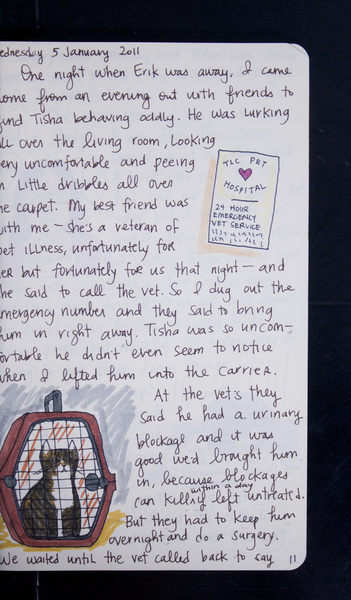 ednesday 5 January 2011
One night when Erik was away, I came
ome from an evening out with friends to
ind Tisha behaving oddly. He was lurking
ll over the living room, Looking
ery uncomfortable and peeing
n Little dribbles all over
he carpet. My best friend was
with me - she's a veteran of
pet illness, unfortunately for
er but fortunately for us that night - and
he said to call the vet. So I dug out the
mergency number and they said to bring
him in right away. Tisha was so uncom-
ortable he didn't even seem to notice
when I lifted him into the carrier.
TLC PET
HOSPITAL
24 HOUR
EMERGENCY
VET SERVICE
At the vet's they
said he had a urinary
blockage and it was
good we'd brought him
in, because blockages
can kill within a day if left untreated.
But they had to keep him
overnight and do a surgery.
We waited until the vet called back to say
11